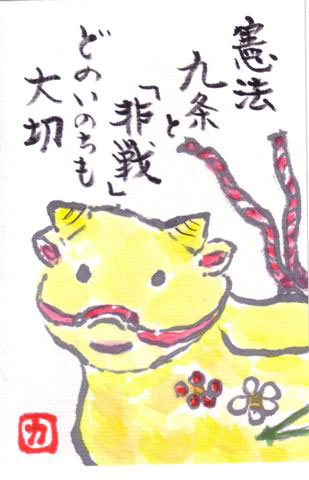 憲法
九条と
「非戦」
どのいのちも
大切
カ